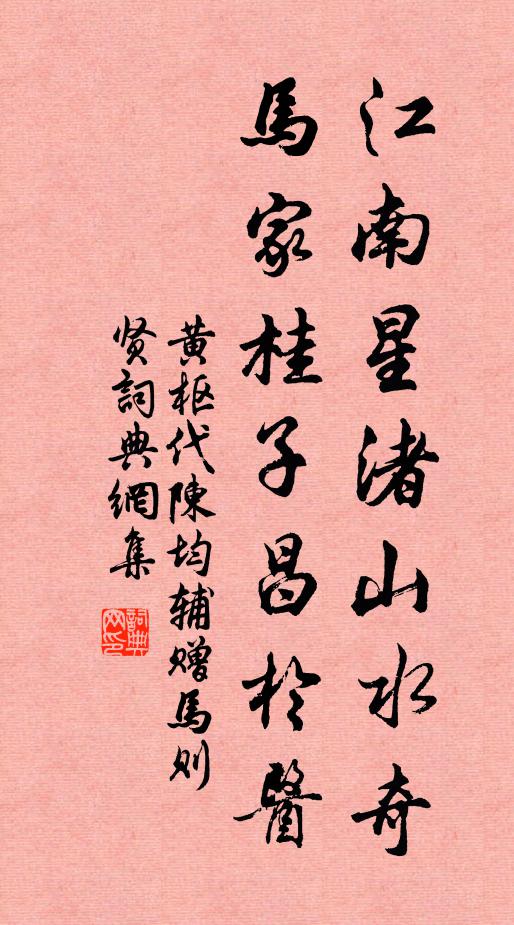 江南星渚山水奇
馬家桂子昌於醫
黄枢代陳均辅贈馬则
贤詞典網集
詞典网印